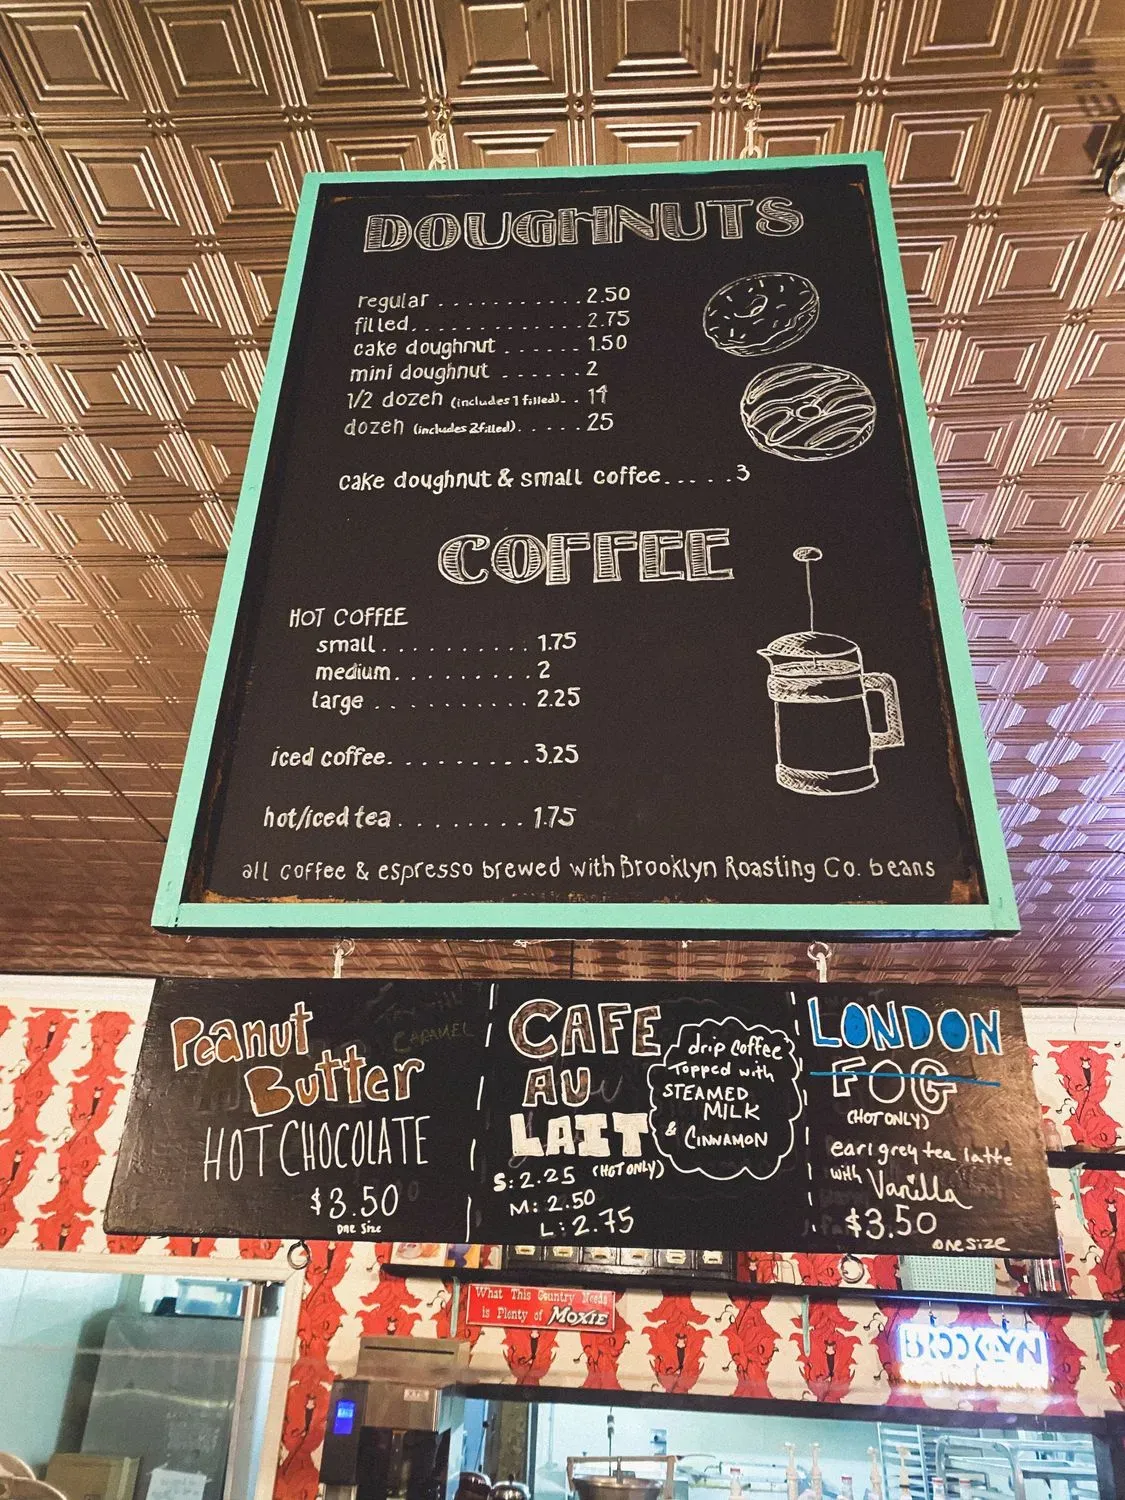 DOUGHNUTS
regular . . . . . . . . . . . 2.50
filled. . . . . . . . . . . . . 2.75
cake doughnut . . . . . . 1.50
mini doughnut . . . . . . 2
1/2 dozen (includes 1 filled). . . 14
dozen (includes 2 filled). . . . . . 25
cake doughnut & small coffee. . . . . 3
COFFEE
HOT COFFEE
small . . . . . . . . . . 1.75
medium. . . . . . . . . 2
large . . . . . . . . . . 2.25
iced coffee. . . . . . . . . 3.25
hot/iced tea . . . . . . . . 1.75
all coffee & espresso brewed with Brooklyn Roasting Co. beans
Peanut
Butter
HOT CHOCOLATE
$3.50
one size
CARAMEL
CAFE
AU
LAIT
S: 2.25 (HOT ONLY)
M: 2.50
L: 2.75
drip coffee
Topped with
STEAMED
MILK
& CINNAMON
LONDON
FOG
(HOT ONLY)
earl grey tea latte
with Vanilla
$3.50
one size
What This Country Needs
is Plenty of MOXIE
BROOKLYN